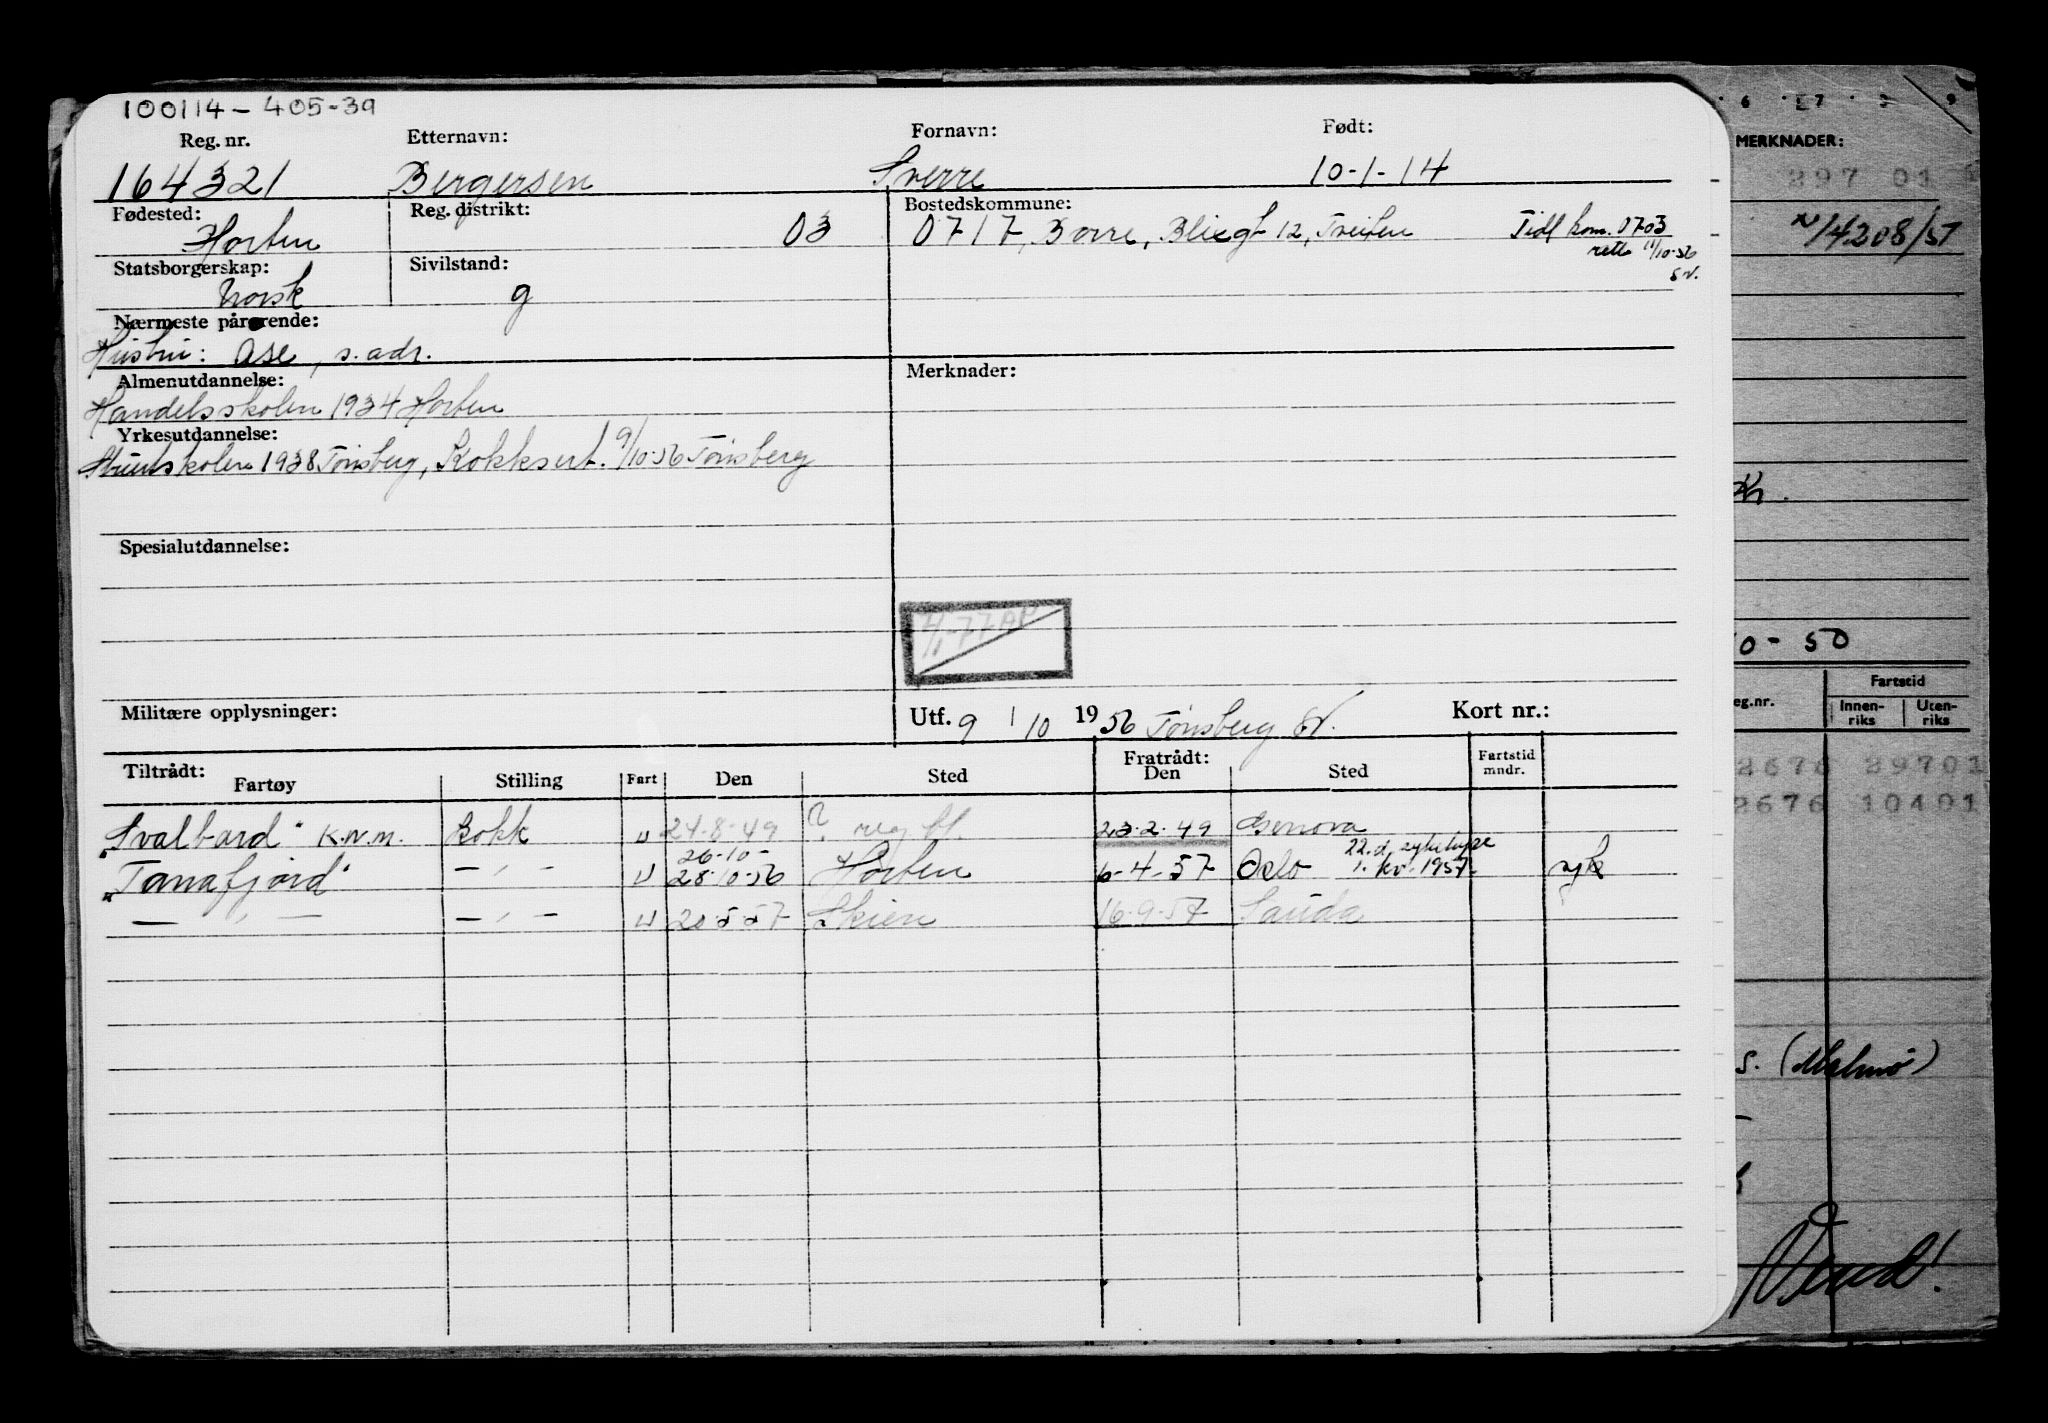 100114-405-39
Reg. nr. Etternavn: Fornavn: Født:
164321 Bergersen Sverre 10-1-14
Fødested: Reg. distrikt: Bostedskommune:
Horten 03 0717, Borre, 12, Tidl kom. 0703
rett 11/10-56
Statsborgerskap: Sivilstand:
Norsk g
Nærmeste pårørende:
Hustru: Åse, s. adr.
Almenutdannelse: Merknader:
Handelsskolen 1934 Horten
Yrkesutdannelse:
1938 Tønsberg, Kokksert. 9/10-56 Tønsberg
Spesialutdannelse:
Militære opplysninger: Utf. 9 / 10 1956 Tønsberg Kort nr.:
Tiltrådt: Fratrådt: Fartstid
Fartøy Stilling Fart Den Sted Den Sted mndr.
Svalbard" K.N.M. kokk U 24-8-49 ? 23-2-49 Genova
26-10-
"Tanafjord" —"— U 28-10-56 Horten 6-4-57 Oslo 1. kv. 1957 syk
—"— —"— U 20-5-57 Skien 16-9-57 Sauda
MERKNADER:
297 01
14208/57
Kr.
0-50
eg.nr. Fartstid
Innen-riks Uten-riks
2676 29701
2676 10401
s. (Malmø)
Vend!